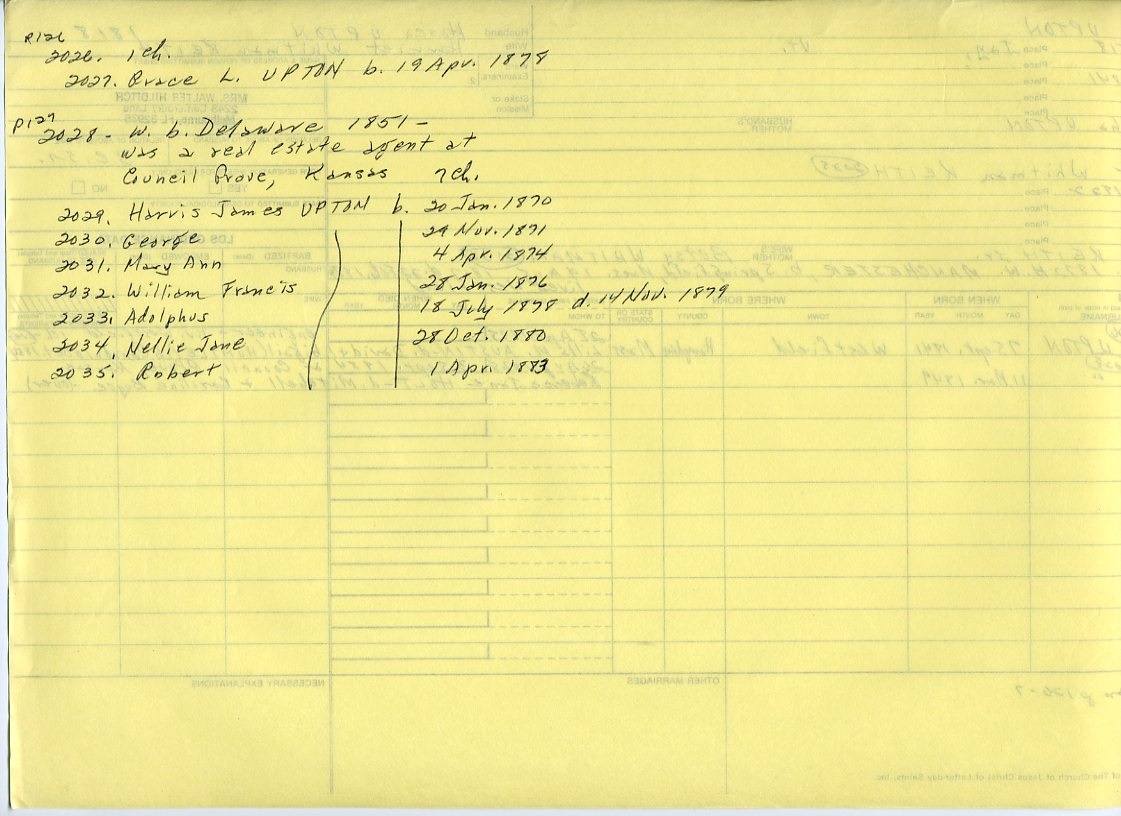 p126
2026. 1 ch.
2027. Grace L. UPTON b. 19 Apr. 1878
p127
2028 - W. b. Delaware 1851 -
was a real estate agent at
Council Grove, Kansas 7 ch.
2029. Harris James UPTON b. 20 Jan. 1870
2030. George 29 Nov. 1871
2031. Mary Ann 4 Apr. 1874
2032. William Francis 28 Jan. 1876
2033. Adolphus 18 July 1878 d. 14 Nov. 1879
2034. Nellie Jane 28 Oct. 1880
2035. Robert 1 Apr. 1883